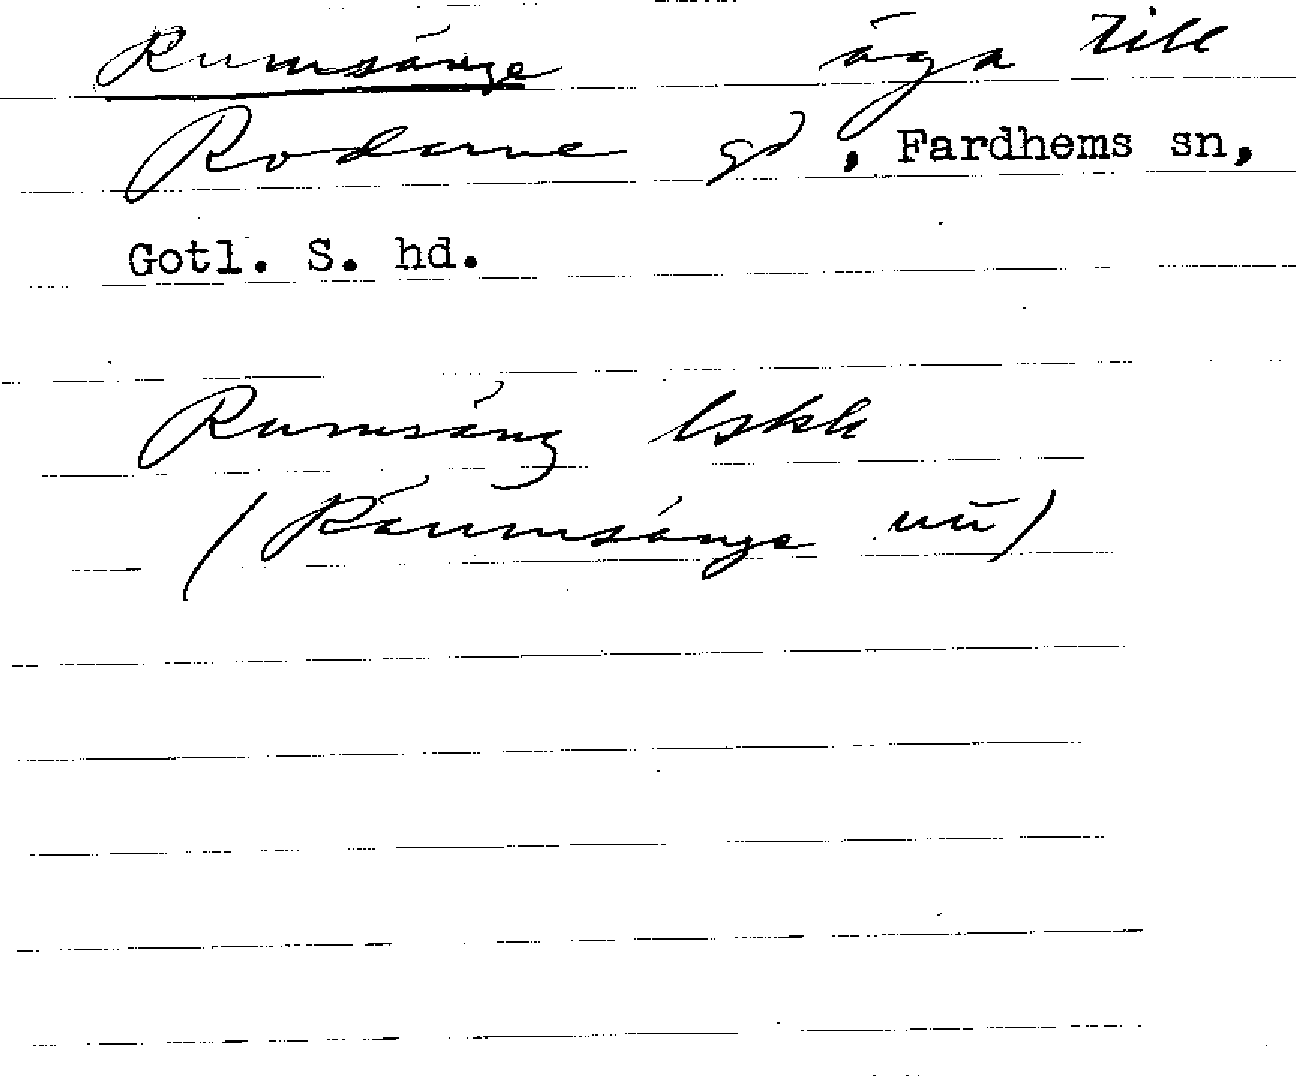 Rumsänge äga till
Rodarve gd, Fardhems sn,
Gotl. S. hd.
Rumsäng lskk
(Raumsänge uu)